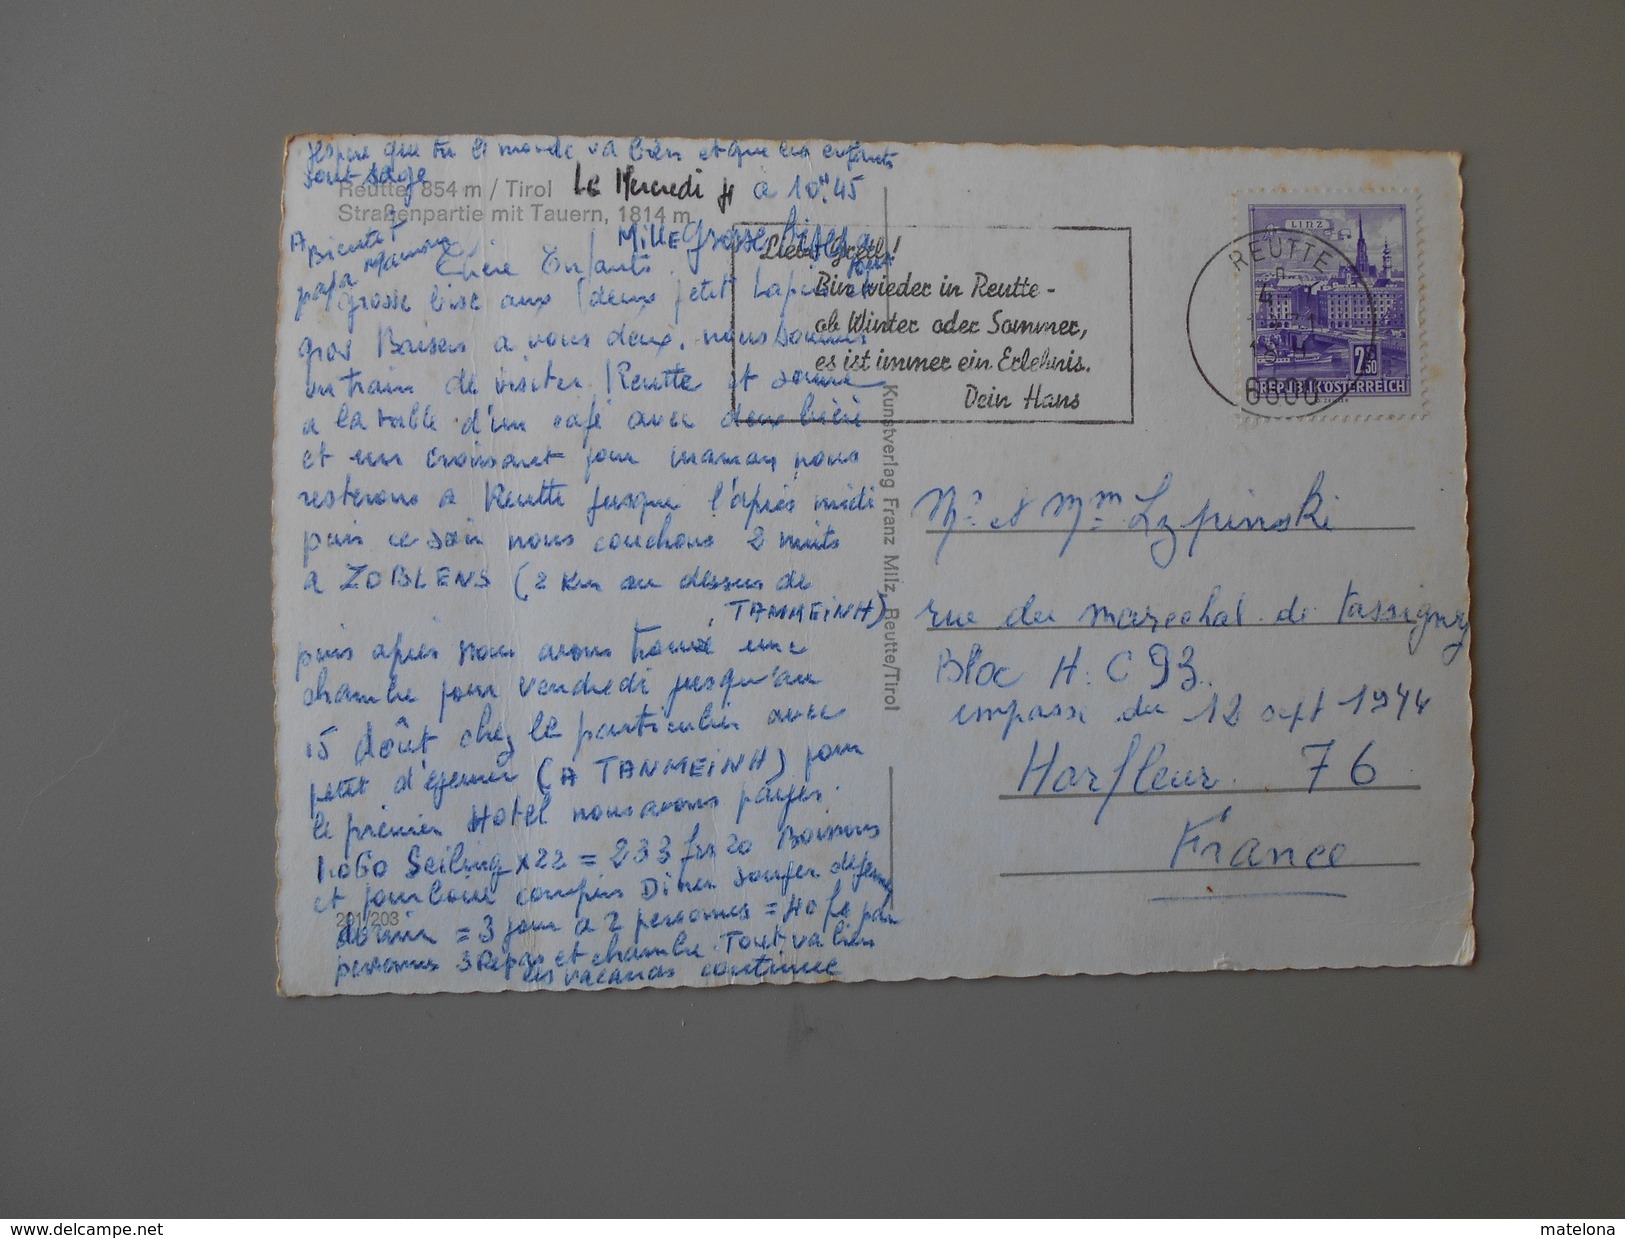 J'espère que tu le monde va bien et que les enfants
sont sage
Reutte, 854 m / Tirol
Le Mercredi 4 a 10H45
Straßenpartie mit Tauern, 1814 m
Mille Grosse Bises
A Bientot
papa Maman
Chère Enfants
grosse bise aux deux petit Lapin et
gros Baisers a vous deux, nous sommes
en train de visiter Reutte et somme
a la table d'un café avec deux bière
et un croissant pour maman, nous
resterons a Reutte jusque l'après midi
puis ce soir nous couchons 2 nuits
a ZOBLENS (2 Km au dessus de
TANMEINH)
puis après nous avons trouvé une
chambre pour vendredi jusqu'au
15 doût chez le particulier avec
petit d'ejeuner (A TANMEINH) pour
le premier Hotel nous avons payer.
1060 Seiling x 22 = 233 frs 20 Boissons
et pourboire compris Diner souper dejeuner
dormir = 3 jour a 2 personnes = 40 fs par
personnes 3 Repas et chambre. Tout va bien
les vacances continue
201/203
Kunstverlag Franz Milz, Reutte/Tirol
Liebe Gretl!
Bin wieder in Reutte -
ob Winter oder Sommer,
es ist immer ein Erlebnis.
Dein Hans
REUTTE
4
6600
LINZ
2.50
REPUBLIK ÖSTERREICH
Mr et Mm Lzpinski
rue du marechal de Tassigny
Bloc H. C 93.
impasse du 12 sept 1944
Harfleur 76
France
www.delcampe.net
matelona